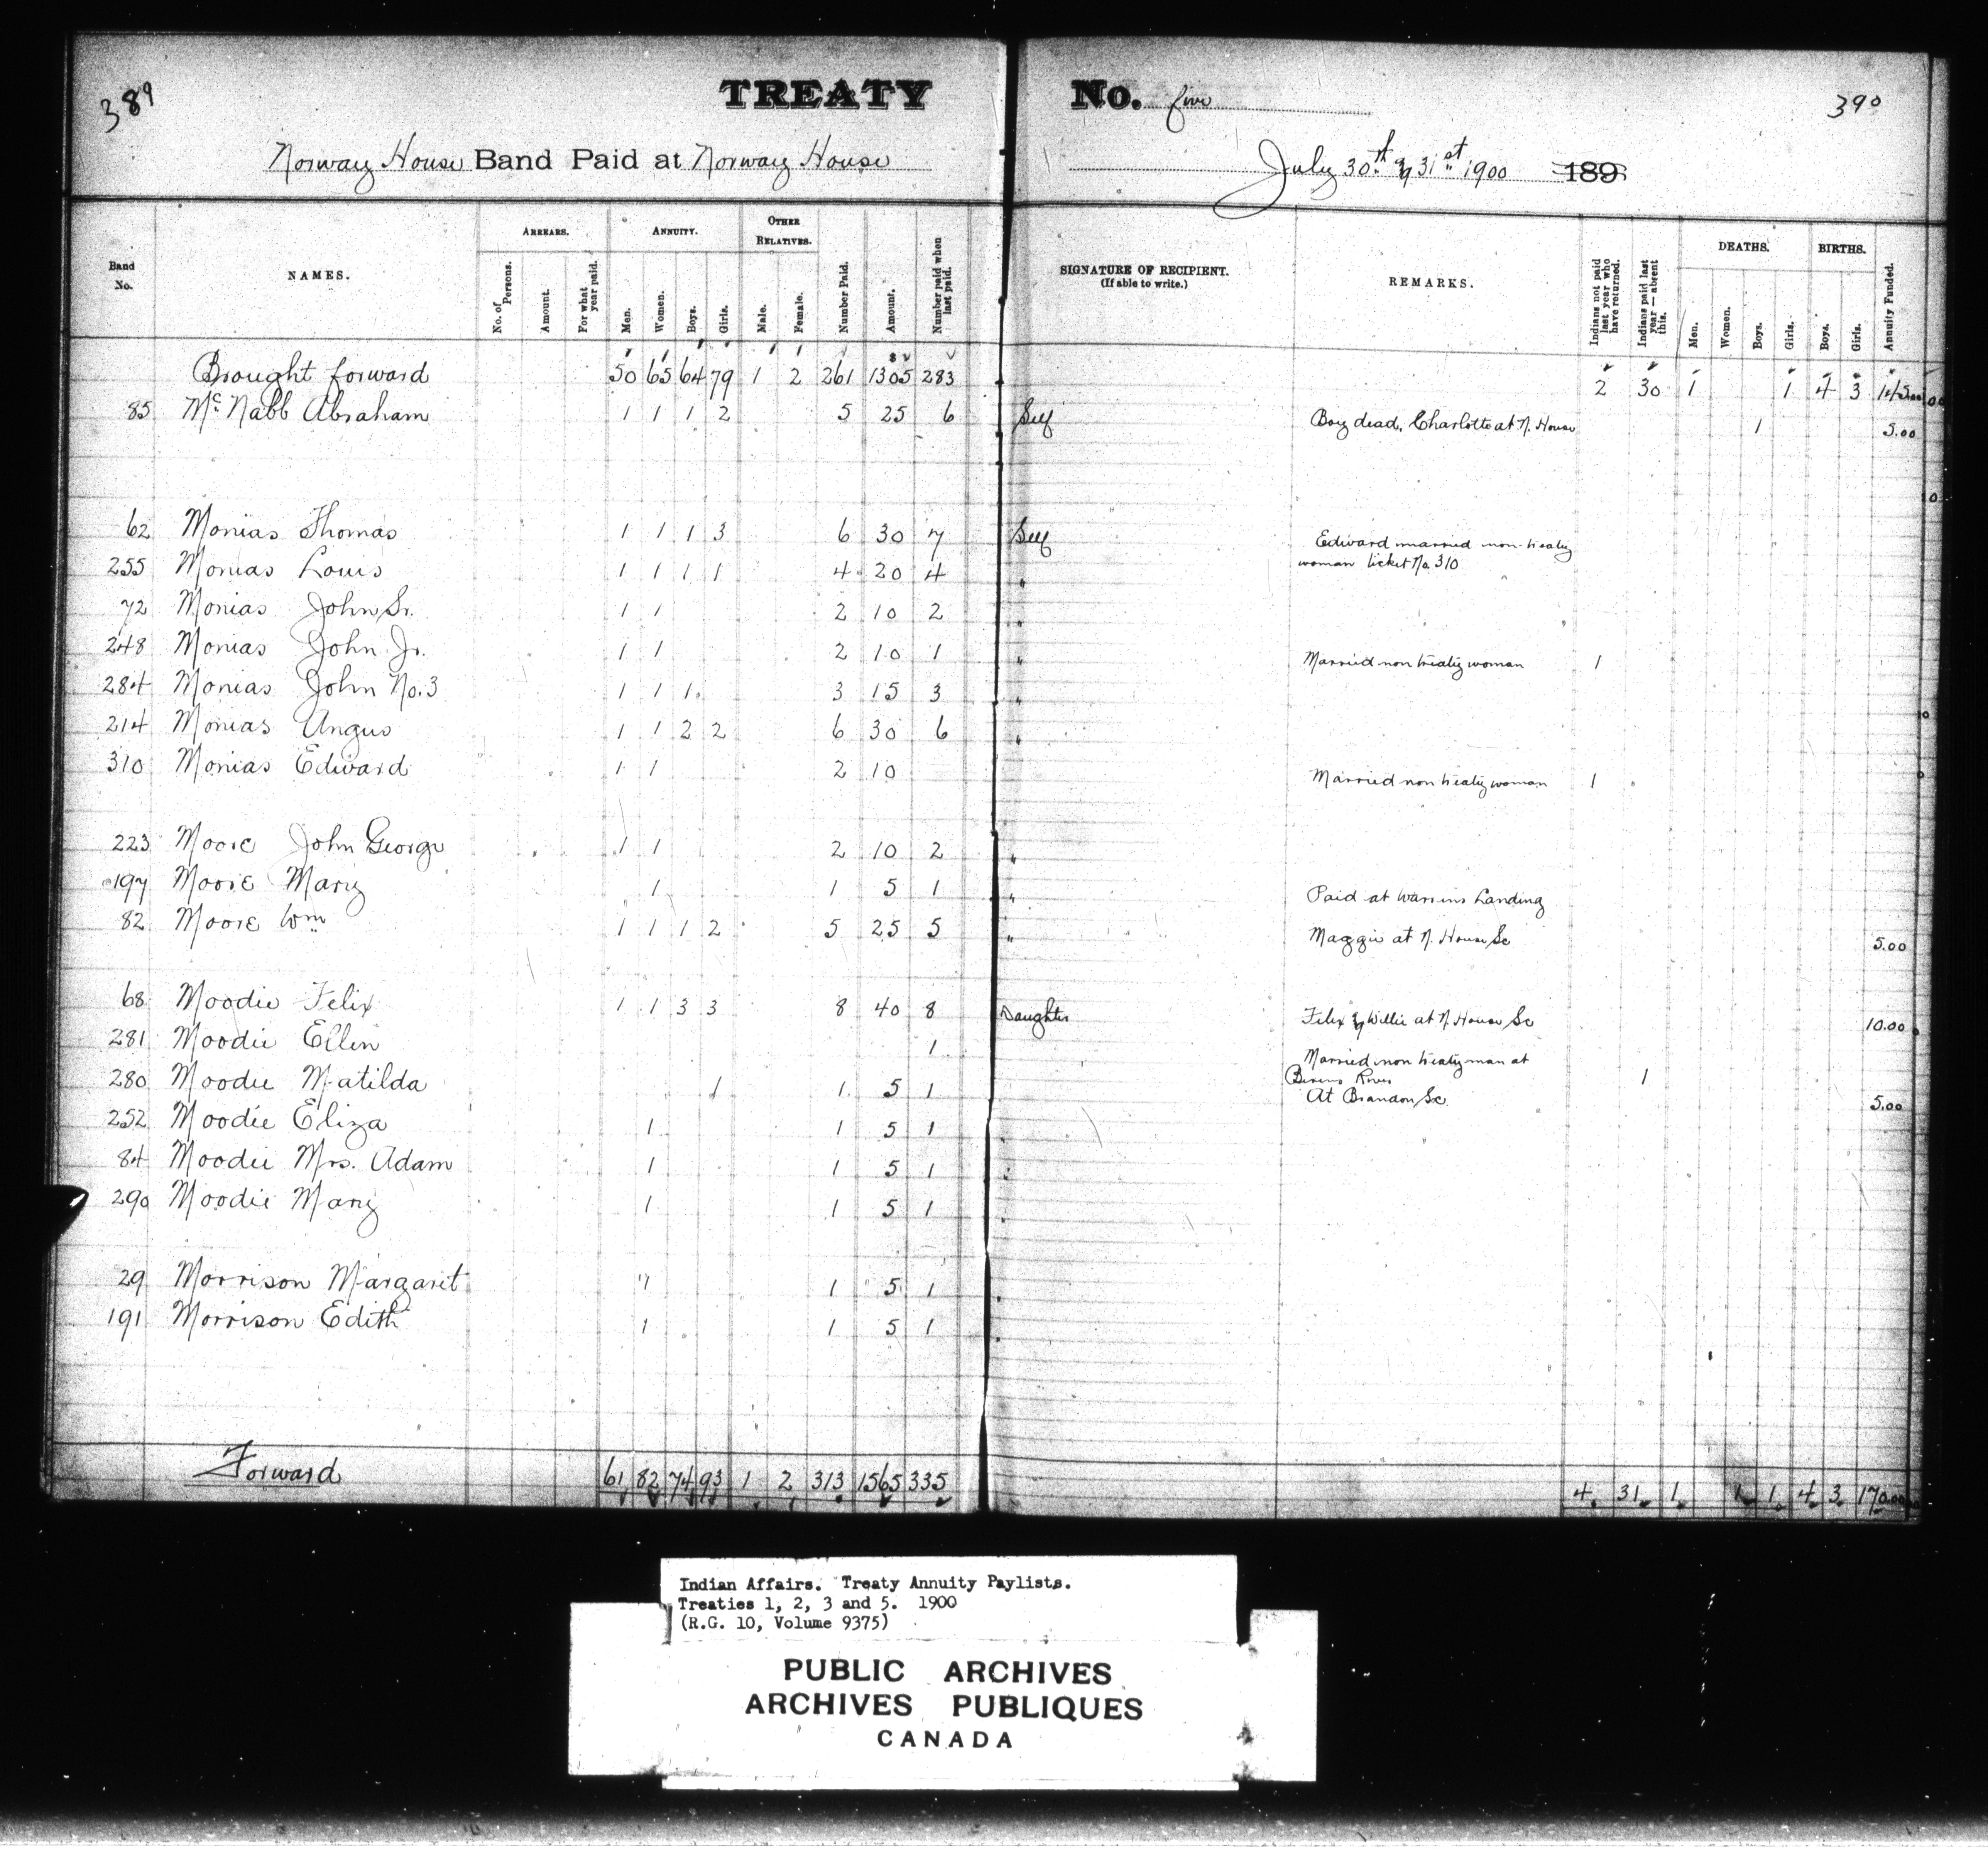 389
TREATY No. five
390
Norway House Band Paid at Norway House
July 30th & 31st 1900 189
Band No.
NAMES.
ARREARS.
No. of Persons.
Amount.
For what year paid.
ANNUITY.
Men.
Women.
Boys.
Girls.
OTHER RELATIVES.
Male.
Female.
Number Paid.
Amount.
Number paid when last paid.
SIGNATURE OF RECIPIENT.
(If able to write.)
REMARKS.
Indians not paid last year who have returned.
Indians paid last year — absent this.
DEATHS.
Men.
Women.
Boys.
Girls.
BIRTHS.
Boys.
Girls.
Annuity Funded.
Brought forward 50 65 64 79 1 2 261 1305 283 2 30 1 1 4 3 145.00
85 McNabb Abraham 1 1 1 2 5 25 6 Self Boy dead, Charlotte at N. House 1 5.00
62 Monias Thomas 1 1 1 3 6 30 7 Self Edward married non-treaty
woman ticket No. 310
255 Monias Louis 1 1 1 1 4 20 4 "
72 Monias John Sr. 1 1 2 10 2 "
248 Monias John Jr. 1 1 2 10 1 " Married non treaty woman 1
284 Monias John No. 3 1 1 1 3 15 3 "
214 Monias Angus 1 1 2 2 6 30 6 "
310 Monias Edward 1 1 2 10 Married non treaty woman 1
223 Moore John George 1 1 2 10 2 "
197 Moore Mary 1 1 5 1 " Paid at Warrens Landing
82 Moore Wm 1 1 1 2 5 25 5 " Maggie at N. House Sc 5.00
68 Moodie Felix 1 1 3 3 8 40 8 Daughter Felix & Willie at N. House Sc 10.00
281 Moodie Ellen 1 Married non treaty man at
Berens River 1
280 Moodie Matilda 1 1 5 1 At Brandon Sc. 5.00
252 Moodie Eliza 1 1 5 1 "
84 Moodie Mrs. Adam 1 1 5 1 "
290 Moodie Mary 1 1 5 1 "
29 Morrison Margaret 1 1 5 1 "
191 Morrison Edith 1 1 5 1 "
Forward 61 82 74 93 1 2 313 1565 335 4 31 1 1 1 4 3 170.00
Indian Affairs. Treaty Annuity Paylists.
Treaties 1, 2, 3 and 5. 1900
(R.G. 10, Volume 9375)
PUBLIC ARCHIVES
ARCHIVES PUBLIQUES
CANADA